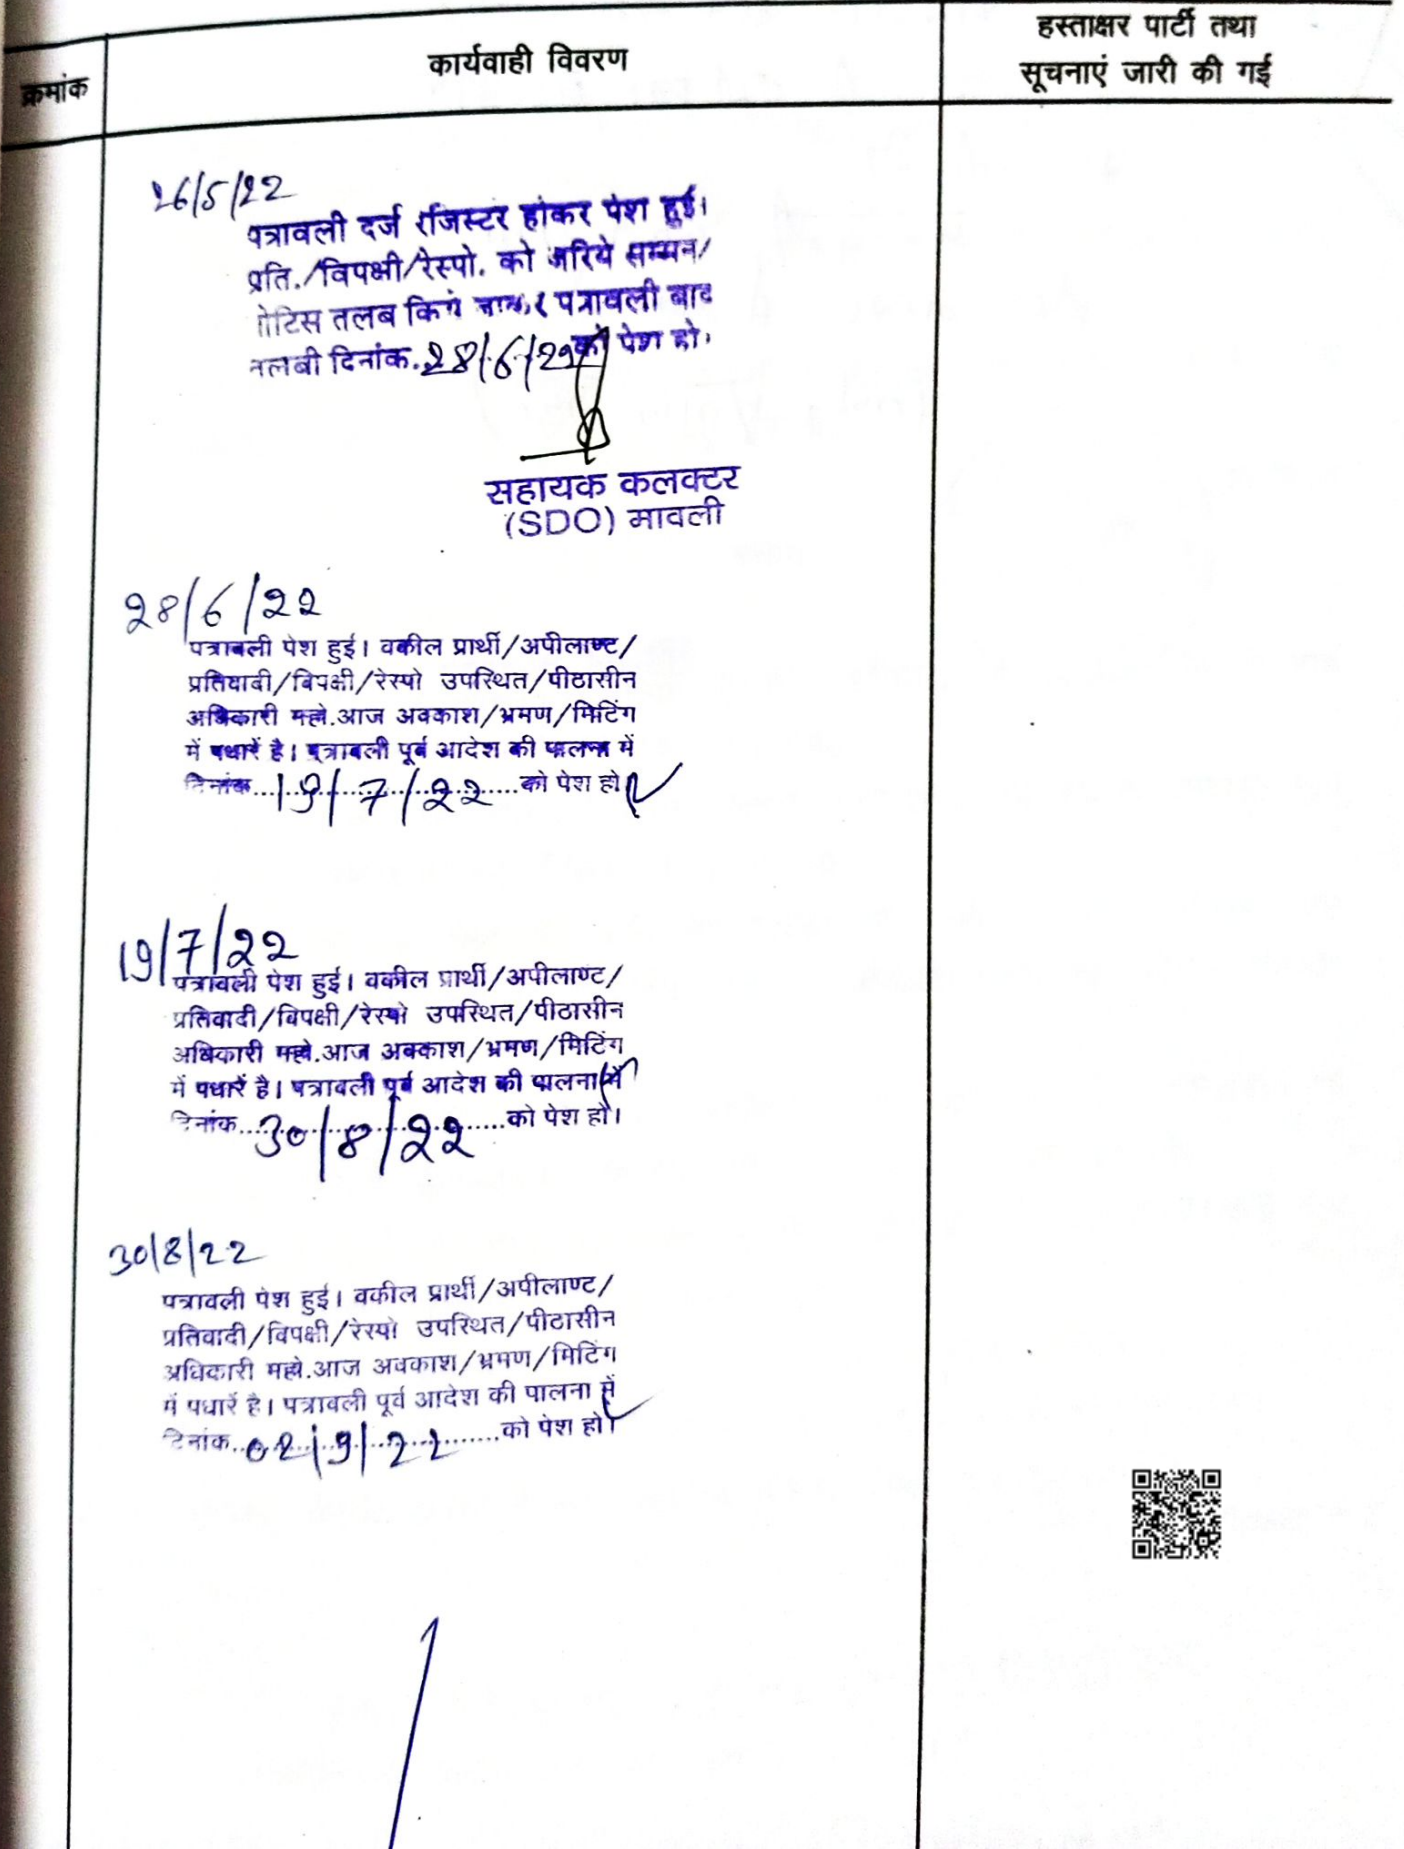 क्रमांक
कार्यवाही विवरण
हस्ताक्षर पार्टी तथा
सूचनाएं जारी की गई
26/5/22
पत्रावली दर्ज रजिस्टर होकर पेश हुई।
प्रति./विपक्षी/रेस्पो. को जरिये सम्मन/
नोटिस तलब किये जाकर पत्रावली बाद
तलबी दिनांक.28/6/22 को पेश हो।
सहायक कलक्टर
(SDO) मावली
28/6/22
पत्रावली पेश हुई। वकील प्रार्थी/अपीलाण्ट/
प्रतिवादी/विपक्षी/रेस्पो उपस्थित/पीठासीन
अधिकारी महो.आज अवकाश/भ्रमण/मिटिंग
में पधारें है। पत्रावली पूर्व आदेश की पालना में
दिनांक...19/7/22...को पेश हो
19/7/22
पत्रावली पेश हुई। वकील प्रार्थी/अपीलाण्ट/
प्रतिवादी/विपक्षी/रेस्पो उपस्थित/पीठासीन
अधिकारी महो.आज अवकाश/भ्रमण/मिटिंग
में पधारें है। पत्रावली पूर्व आदेश की पालना में
दिनांक...30/8/22...को पेश हो।
30/8/22
पत्रावली पेश हुई। वकील प्रार्थी/अपीलाण्ट/
प्रतिवादी/विपक्षी/रेस्पो उपस्थित/पीठासीन
अधिकारी महो.आज अवकाश/भ्रमण/मिटिंग
में पधारें है। पत्रावली पूर्व आदेश की पालना में
दिनांक...02/9/22...को पेश हो।